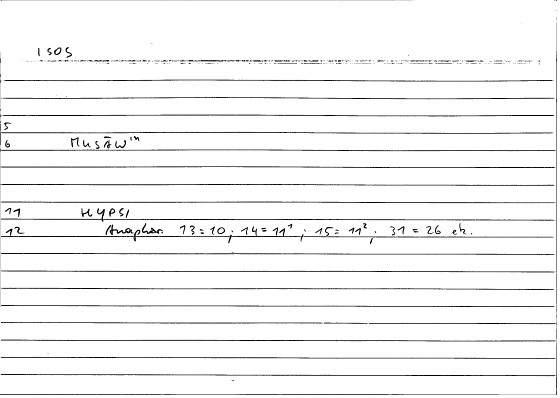 ISOS
5
6 MUSĀWin
11 HYPSI
12 Anaphor. 13=10; 14=11¹; 15=11²; 31=26 etc.